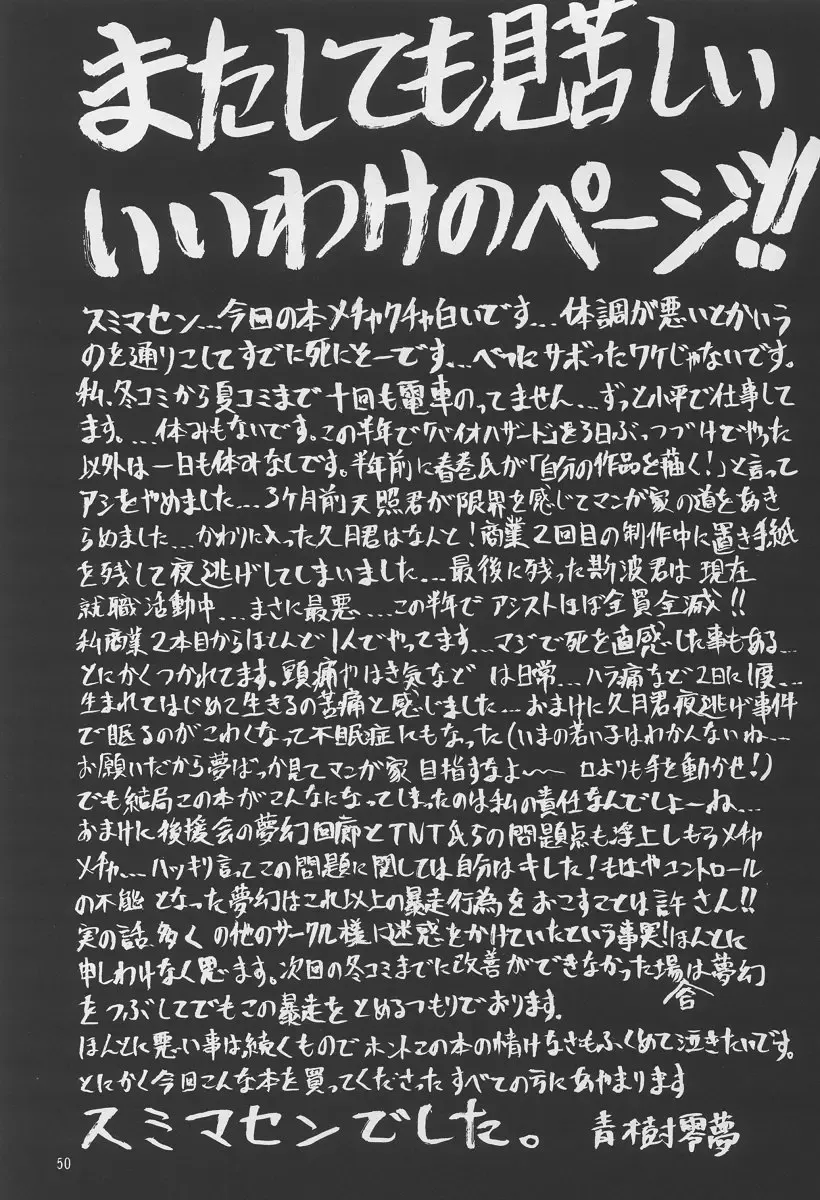 またしても見苦しい
いいわけのページ!!
スミマセン...今回の本メチャクチャ白いです...体調が悪いとかいう
のを通りこしてすでに死にそーです...べつにサボったワケじゃないです。
私、冬コミから夏コミまで十回も電車のってません...ずっと小平で仕事して
ます。...休みもないです。この半年で「バイオハザード」を3日ぶっつづけでやった
以外は一日も休みなしです。半年前に春巻氏が「自分の作品を描く!」と言って
アシをやめました...3ケ月前天照君が限界を感じてマンガ家の道をあき
らめました...かわりに入った久月君はなんと!商業2回目の制作中に置き手紙
を残して夜逃げしてしまいました...最後に残った斯波君は現在
就職活動中...まさに最悪...この半年でアシストほぼ全員全滅!!
私商業2本目からほとんど1人でやってます...マジで死を直感した事もある...
とにかくつかれてます。頭痛やはき気などは日常...ハラ痛など2日に1度...
生まれてはじめて生きるの苦痛と感じました...おまけに久月君夜逃げ事件
で眠るのがこわくなって不眠症にもなった(いまの若い子はわかんないね...
お願いだから夢ばっか見てマンガ家目指すなよ〜〜 口よりも手を動かせ!)
でも結局この本がこんなになってしまったのは私の責任なんでしょーね...
おまけに後援会の夢幻回廊とTNT氏らの問題点も浮上しもうメチャ
メチャ...ハッキリ言ってこの問題に関しては自分はキレた!もはやコントロール
の不能となった夢幻はこれ以上の暴走行為をおこすことは許さん!!
実の話多くの他のサークル様に迷惑をかけていたという事実!ほんとに
申しわけなく思います。次回の冬コミまでに改善ができなかった場合は夢幻
をつぶしてでもこの暴走をとめるつもりでおります。
ほんとに悪い事は続くものでホントこの本の情けなさもふくめて泣きたいです。
とにかく今回こんな本を買ってくださったすべての方にあやまります
スミマセンでした。 青樹零夢
50